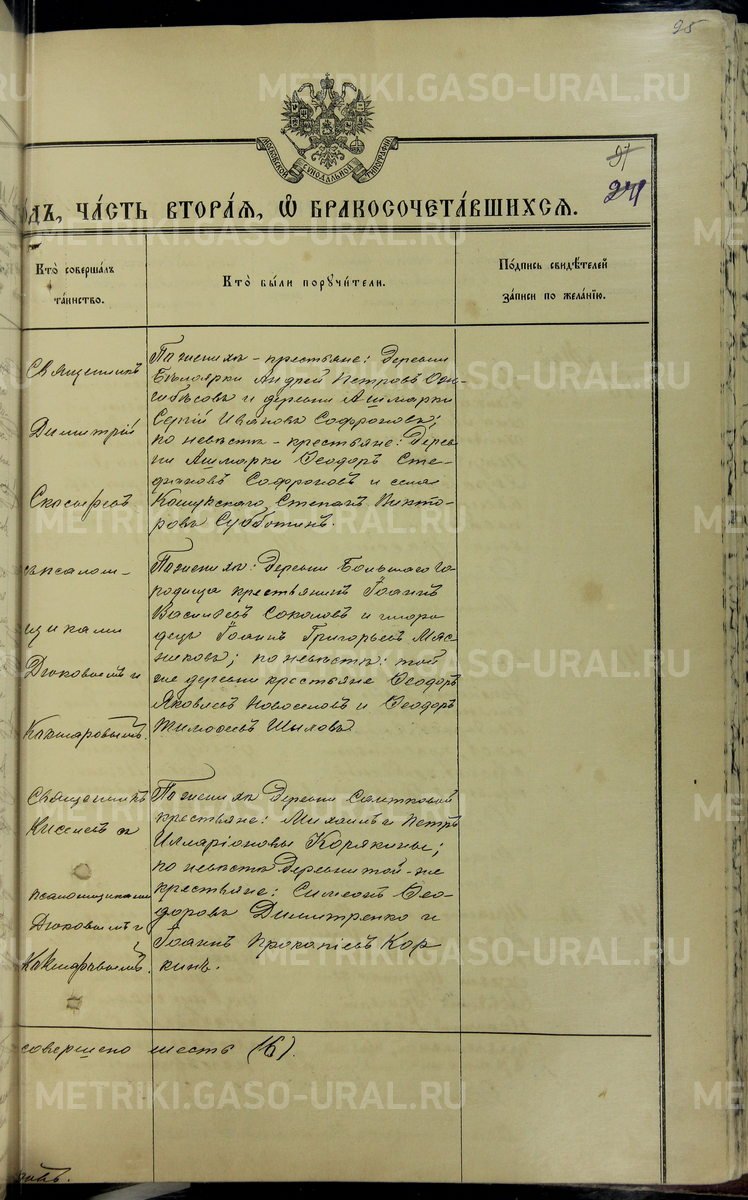 25
МОСКОВСКОЙ СѴНОДАЛЬНОЙ ТИПОГРАФІИ
97
241
ОДЪ, ЧАСТЬ ВТОРАЯ, Ѡ БРАКОСОЧЕТАВШИХСЯ.
Кто совершалъ
таинство.
Кто были поручители.
Подпись свидѣтелей
записи по желанію.
Священникъ
Димитрій
Скосыревъ
съ псалом-
щиками
Дюковымъ и
Кокшаровымъ.
По женихѣ - крестьяне: Деревни
Бѣлоярки Андрей Петровъ
и деревни Ашмарки
Сергій Ивановъ Софроновъ;
по невѣстѣ - крестьяне: Дерев-
ни Ашмарки Ѳеодоръ Сте-
фановъ Софроновъ и села
Кошукскаго Степанъ Викто-
ровъ Субботинъ.
По женихѣ: Деревни Большаго Го-
родища крестьянинъ Іоаннъ
Васильевъ Соколовъ и
Іоаннъ Григорьевъ Мяс-
никовъ; по невѣстѣ: той
же деревни крестьяне Ѳеодоръ
Яковлевъ Новоселовъ и Ѳеодоръ
Тимоѳеевъ Шыловъ
Священникъ
Киселевъ съ
псаломщиками
Дюковымъ и
Кокшаровымъ.
По женихѣ Деревни
крестьяне: Михаилъ и Петръ
Илларіоновы Корякины;
по невѣстѣ Деревни той-же
крестьяне: Симеонъ Ѳео-
доровъ Димитренко и
Іоаннъ Прокопіевъ Кор-
кинъ.
совершено шесть (6).
METRIKI.GASO-URAL.RU